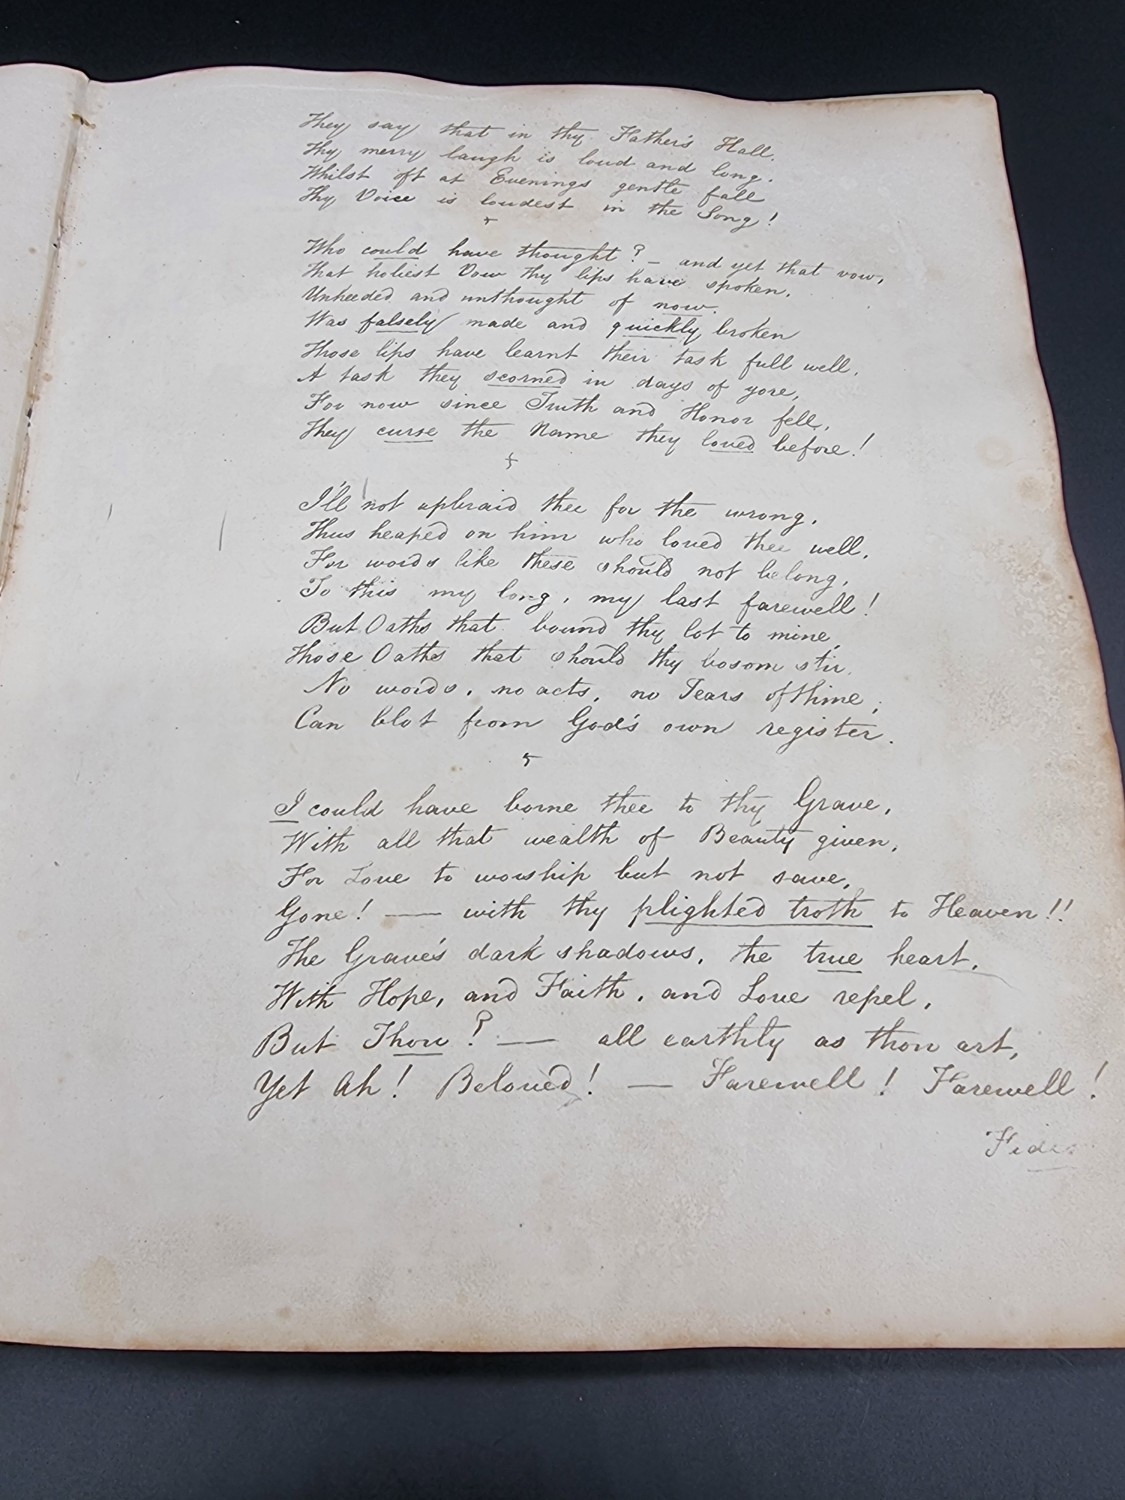 They say that in thy Father's Hall.
Thy merry laugh is loud and long.
Whilst oft at Evenings gentle fall
Thy Voice is loudest in the Song!
Who could have thought? — and yet that vow,
That holiest Vow thy lips have spoken,
Unheeded and unthought of now.
Was falsely made and quickly broken
Those lips have learnt their task full well,
A task they scorned in days of yore,
For now since Truth and Honor fell,
They curse the Name they loved before!
I'll not upbraid thee for the wrong,
Thus heaped on him who loved thee well,
For words like these should not belong,
To this my long, my last farewell!
But Oaths that bound thy lot to mine,
Those Oaths that should thy bosom stir.
No words, no acts, no Tears of thine,
Can blot from God's own register.
I could have borne thee to thy Grave,
With all that wealth of Beauty given,
For Love to worship but not save,
Gone! — with thy plighted troth to Heaven!!
The Grave's dark shadows, the true heart,
With Hope, and Faith, and Love repel,
But Thou? — all earthly as thou art,
Yet Ah! Beloved! — Farewell! Farewell!
Fides